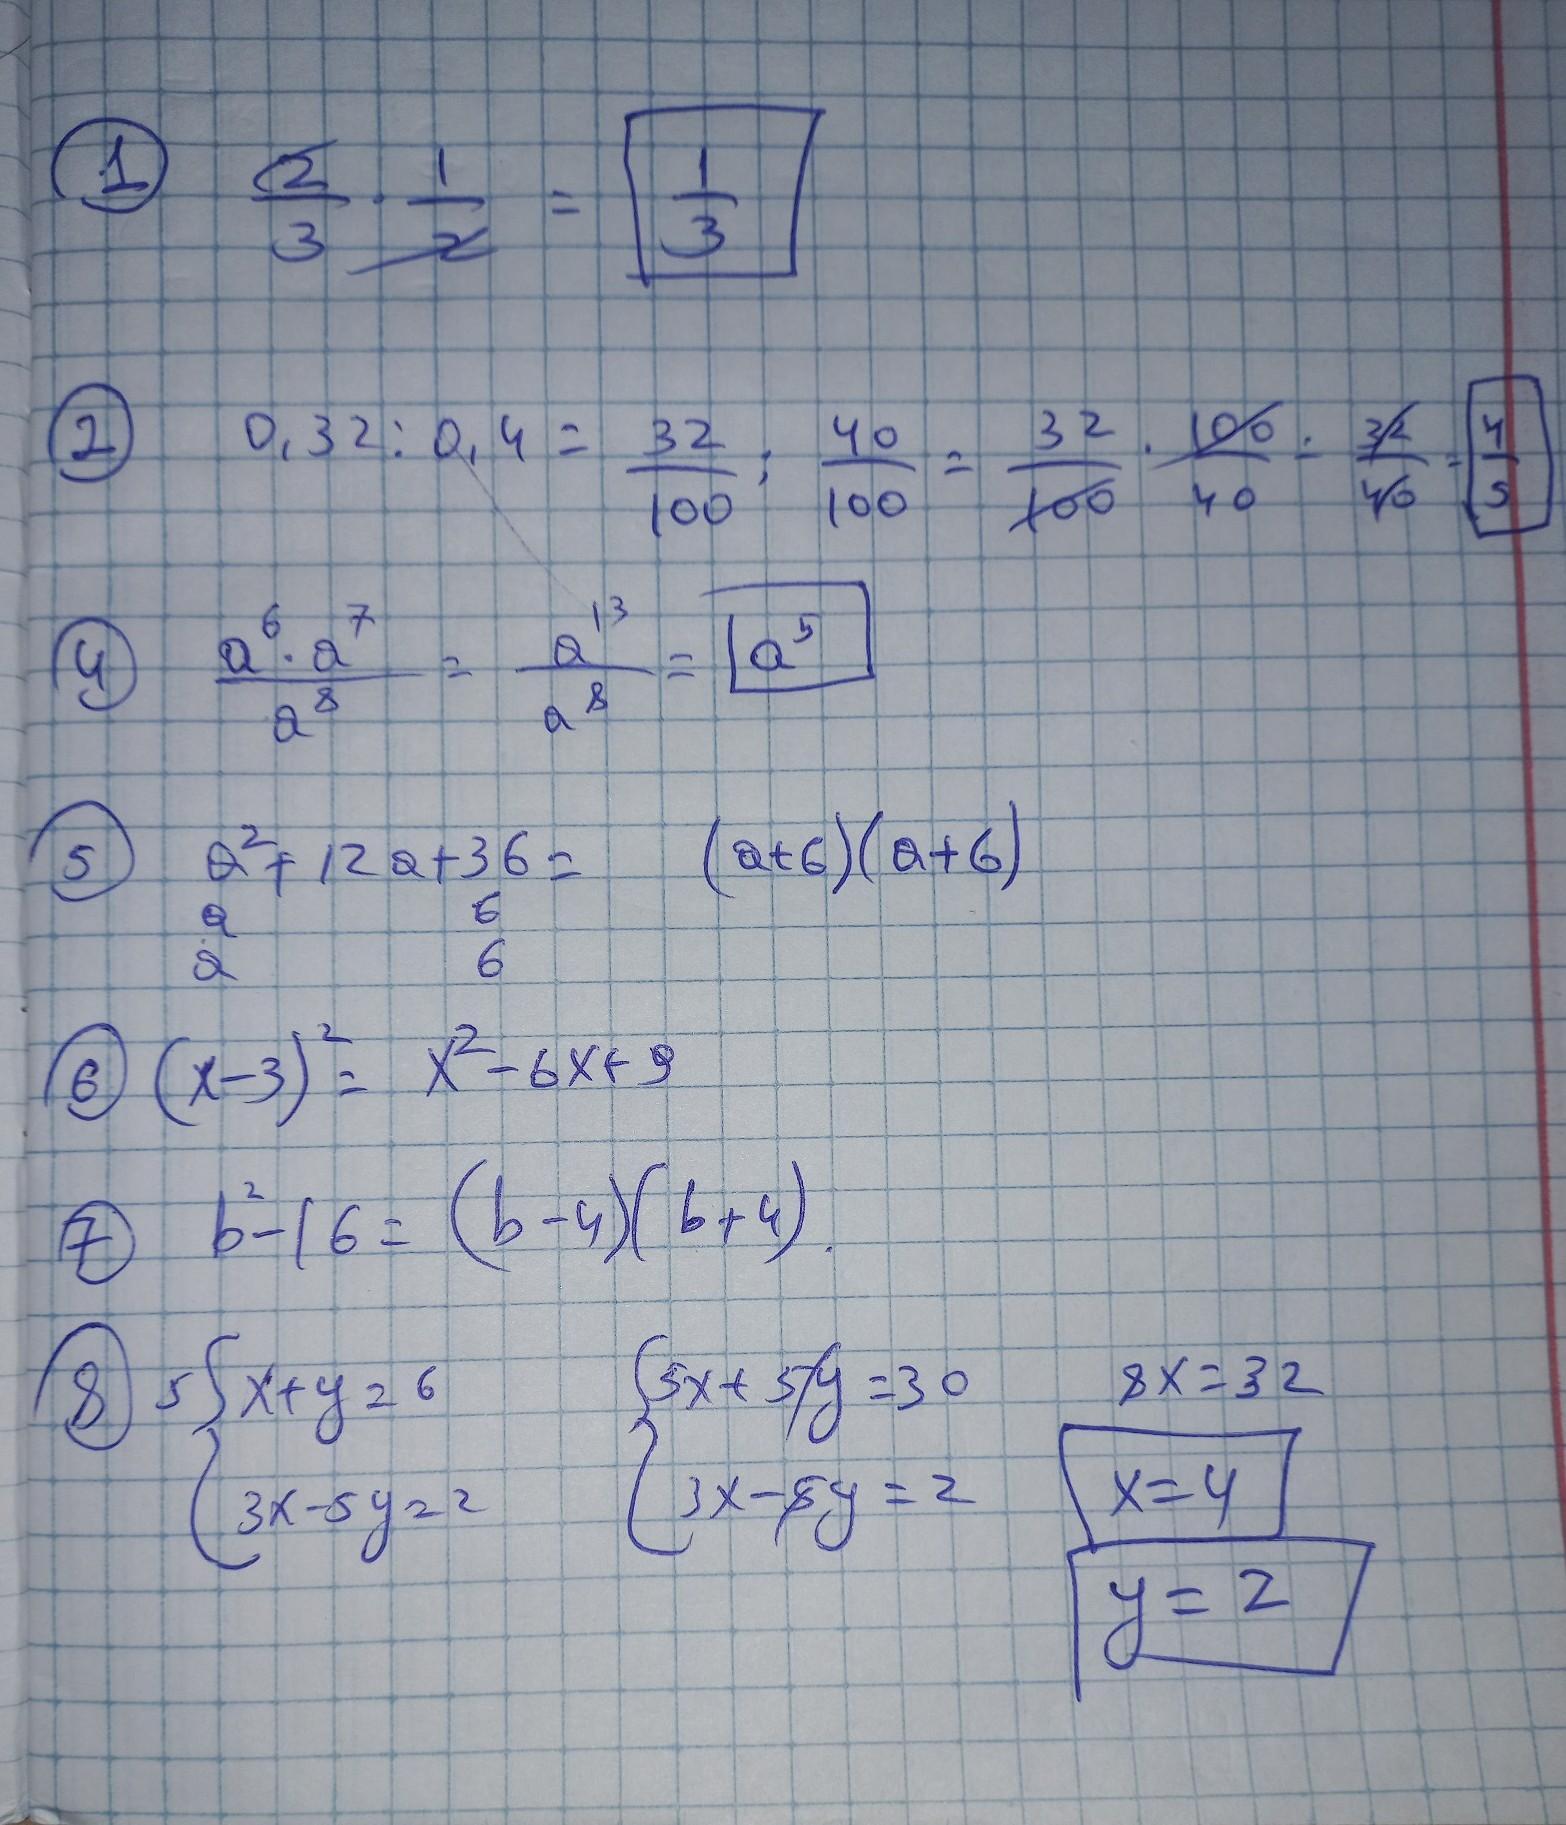 1 2/3 · 1/2 = 1/3
2 0,32 : 0,4 = 32/100 : 40/100 = 32/100 · 100/40 = 32/40 = 4/5
4 a⁶ · a⁷/a⁸ = a¹³/a⁸ = a⁵
5 a² + 12a + 36 = (a+6)(a+6)
a 6
a 6
6 (x-3)² = x² - 6x + 9
7 b² - 16 = (b-4)(b+4).
8 5 { x+y = 6 { 5x + 5y = 30 8x = 32
3x - 5y = 2 3x - 5y = 2 x = 4
y = 2